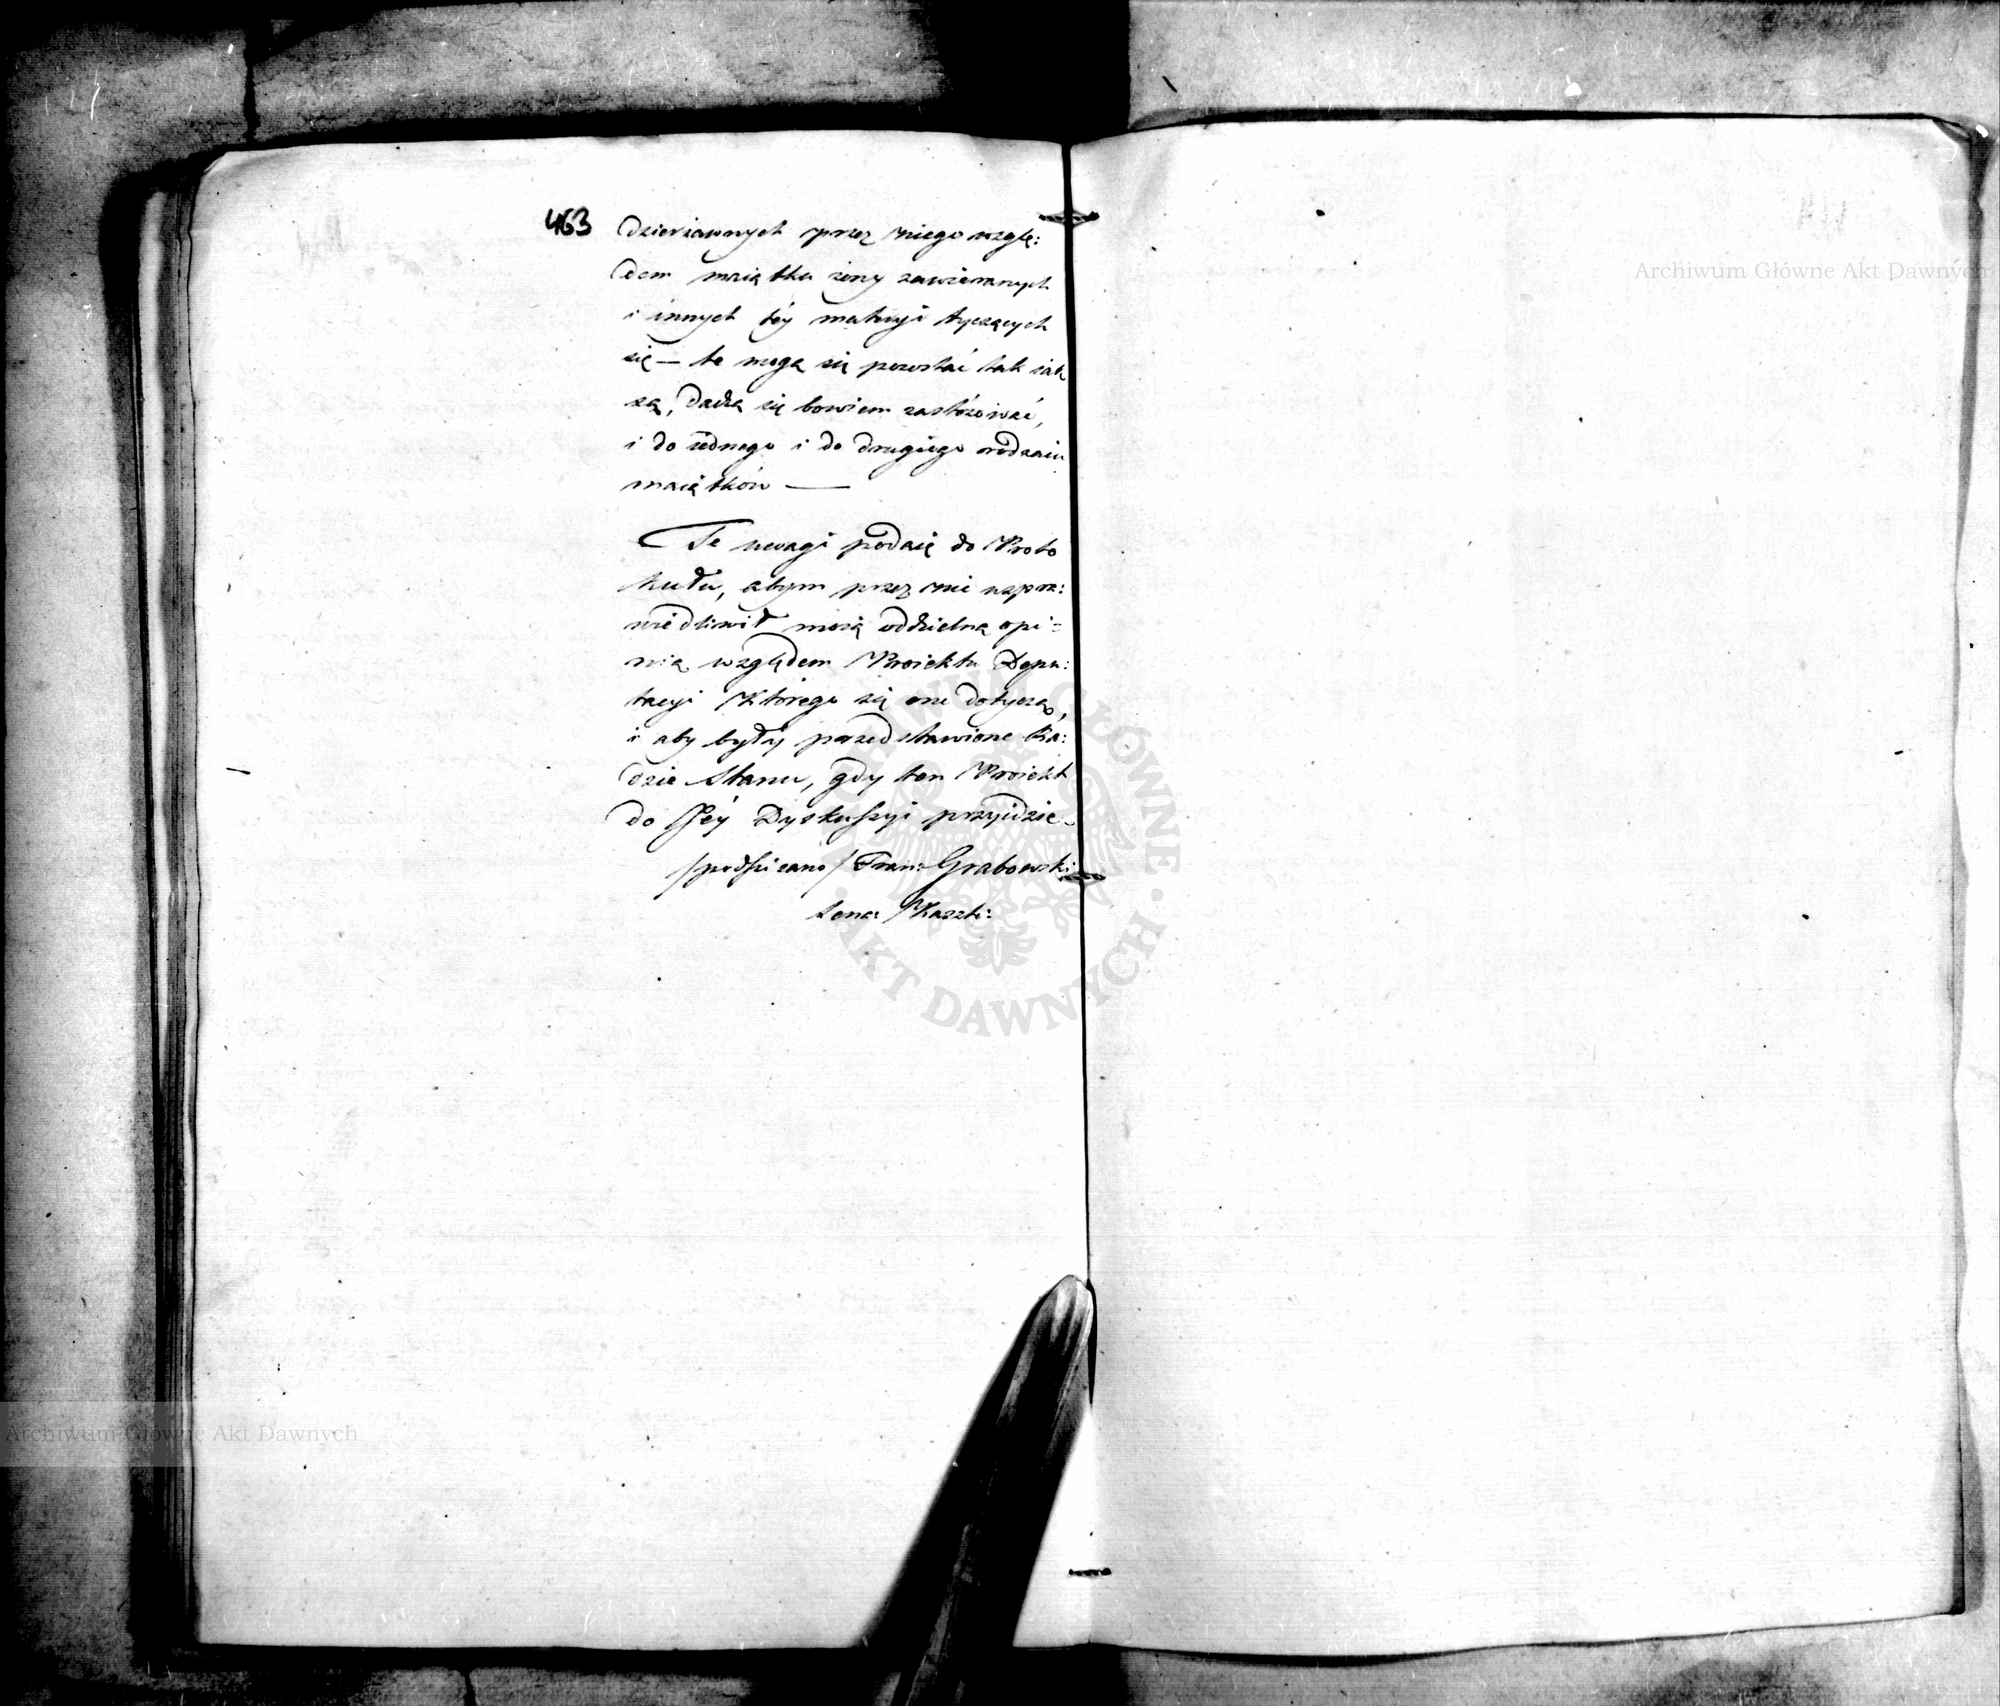 463
dzierżawnych przez niego wzglę:
dem maiątku żony zawieranych
i innych téy materyi tyczących
się — te mogą się pozostać tak iak
są, dadzą się bowiem zastósować,
i do iednego i do drugiego rodzaiu
maiątków —
Te uwagi podaię do Proto
kułu, abym przez nie uspra:
wiedliwił moią oddzielną opi:
nią względem Proiektu Depu:
tacyi którego się one dotyczą,
i aby były przedstawione Ra:
dzie Stanu, gdy ten Proiekt
do Jéy Dyskussyi przyidzie.
/podpisano/ Fran: Grabowski
Sena: Kaszt:
Archiwum Główne Akt Dawnych
Archiwum Główne Akt Dawnych
ARCHIWUM GŁÓWNE · AKT DAWNYCH ·